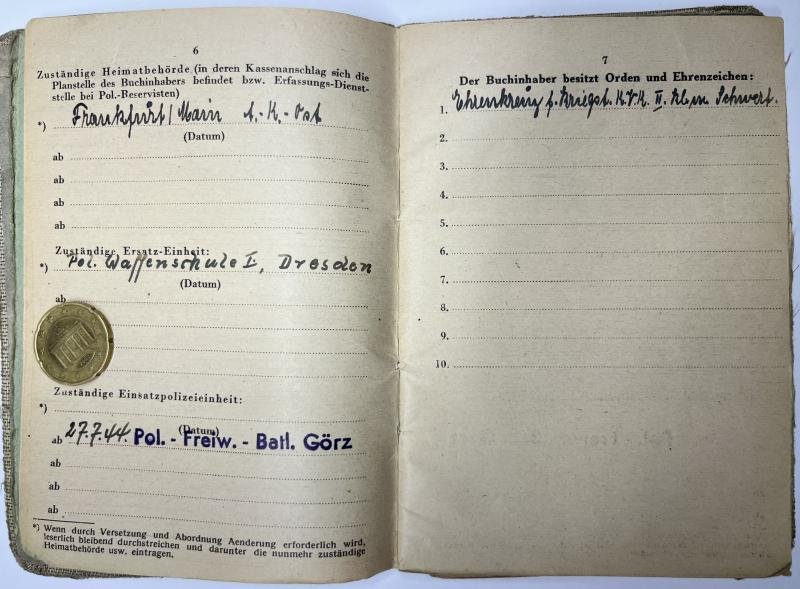 6
Zuständige Heimatbehörde (in deren Kassenanschlag sich die
Planstelle des Buchinhabers befindet bzw. Erfassungs-Dienst-
stelle bei Pol.-Reservisten)
*) Frankfurt/Main A.-K.-Ost
(Datum)
ab
ab
ab
ab
Zuständige Ersatz-Einheit:
*) Pol. Waffenschule I, Dresden
(Datum)
ab
Zuständige Einsatzpolizeieinheit:
*)
(Datum)
ab 27.7.44. Pol. - Freiw. - Batl. Görz
ab
ab
ab
*) Wenn durch Versetzung und Abordnung Aenderung erforderlich wird,
leserlich bleibend durchstreichen und darunter die nunmehr zuständige
Heimatbehörde usw. eintragen.
7
Der Buchinhaber besitzt Orden und Ehrenzeichen:
1. Ehrenkreuz f. Kriegst. K.V.K. II. Kl. m. Schwert.
2.
3.
4.
5.
6.
7.
8.
9.
10.